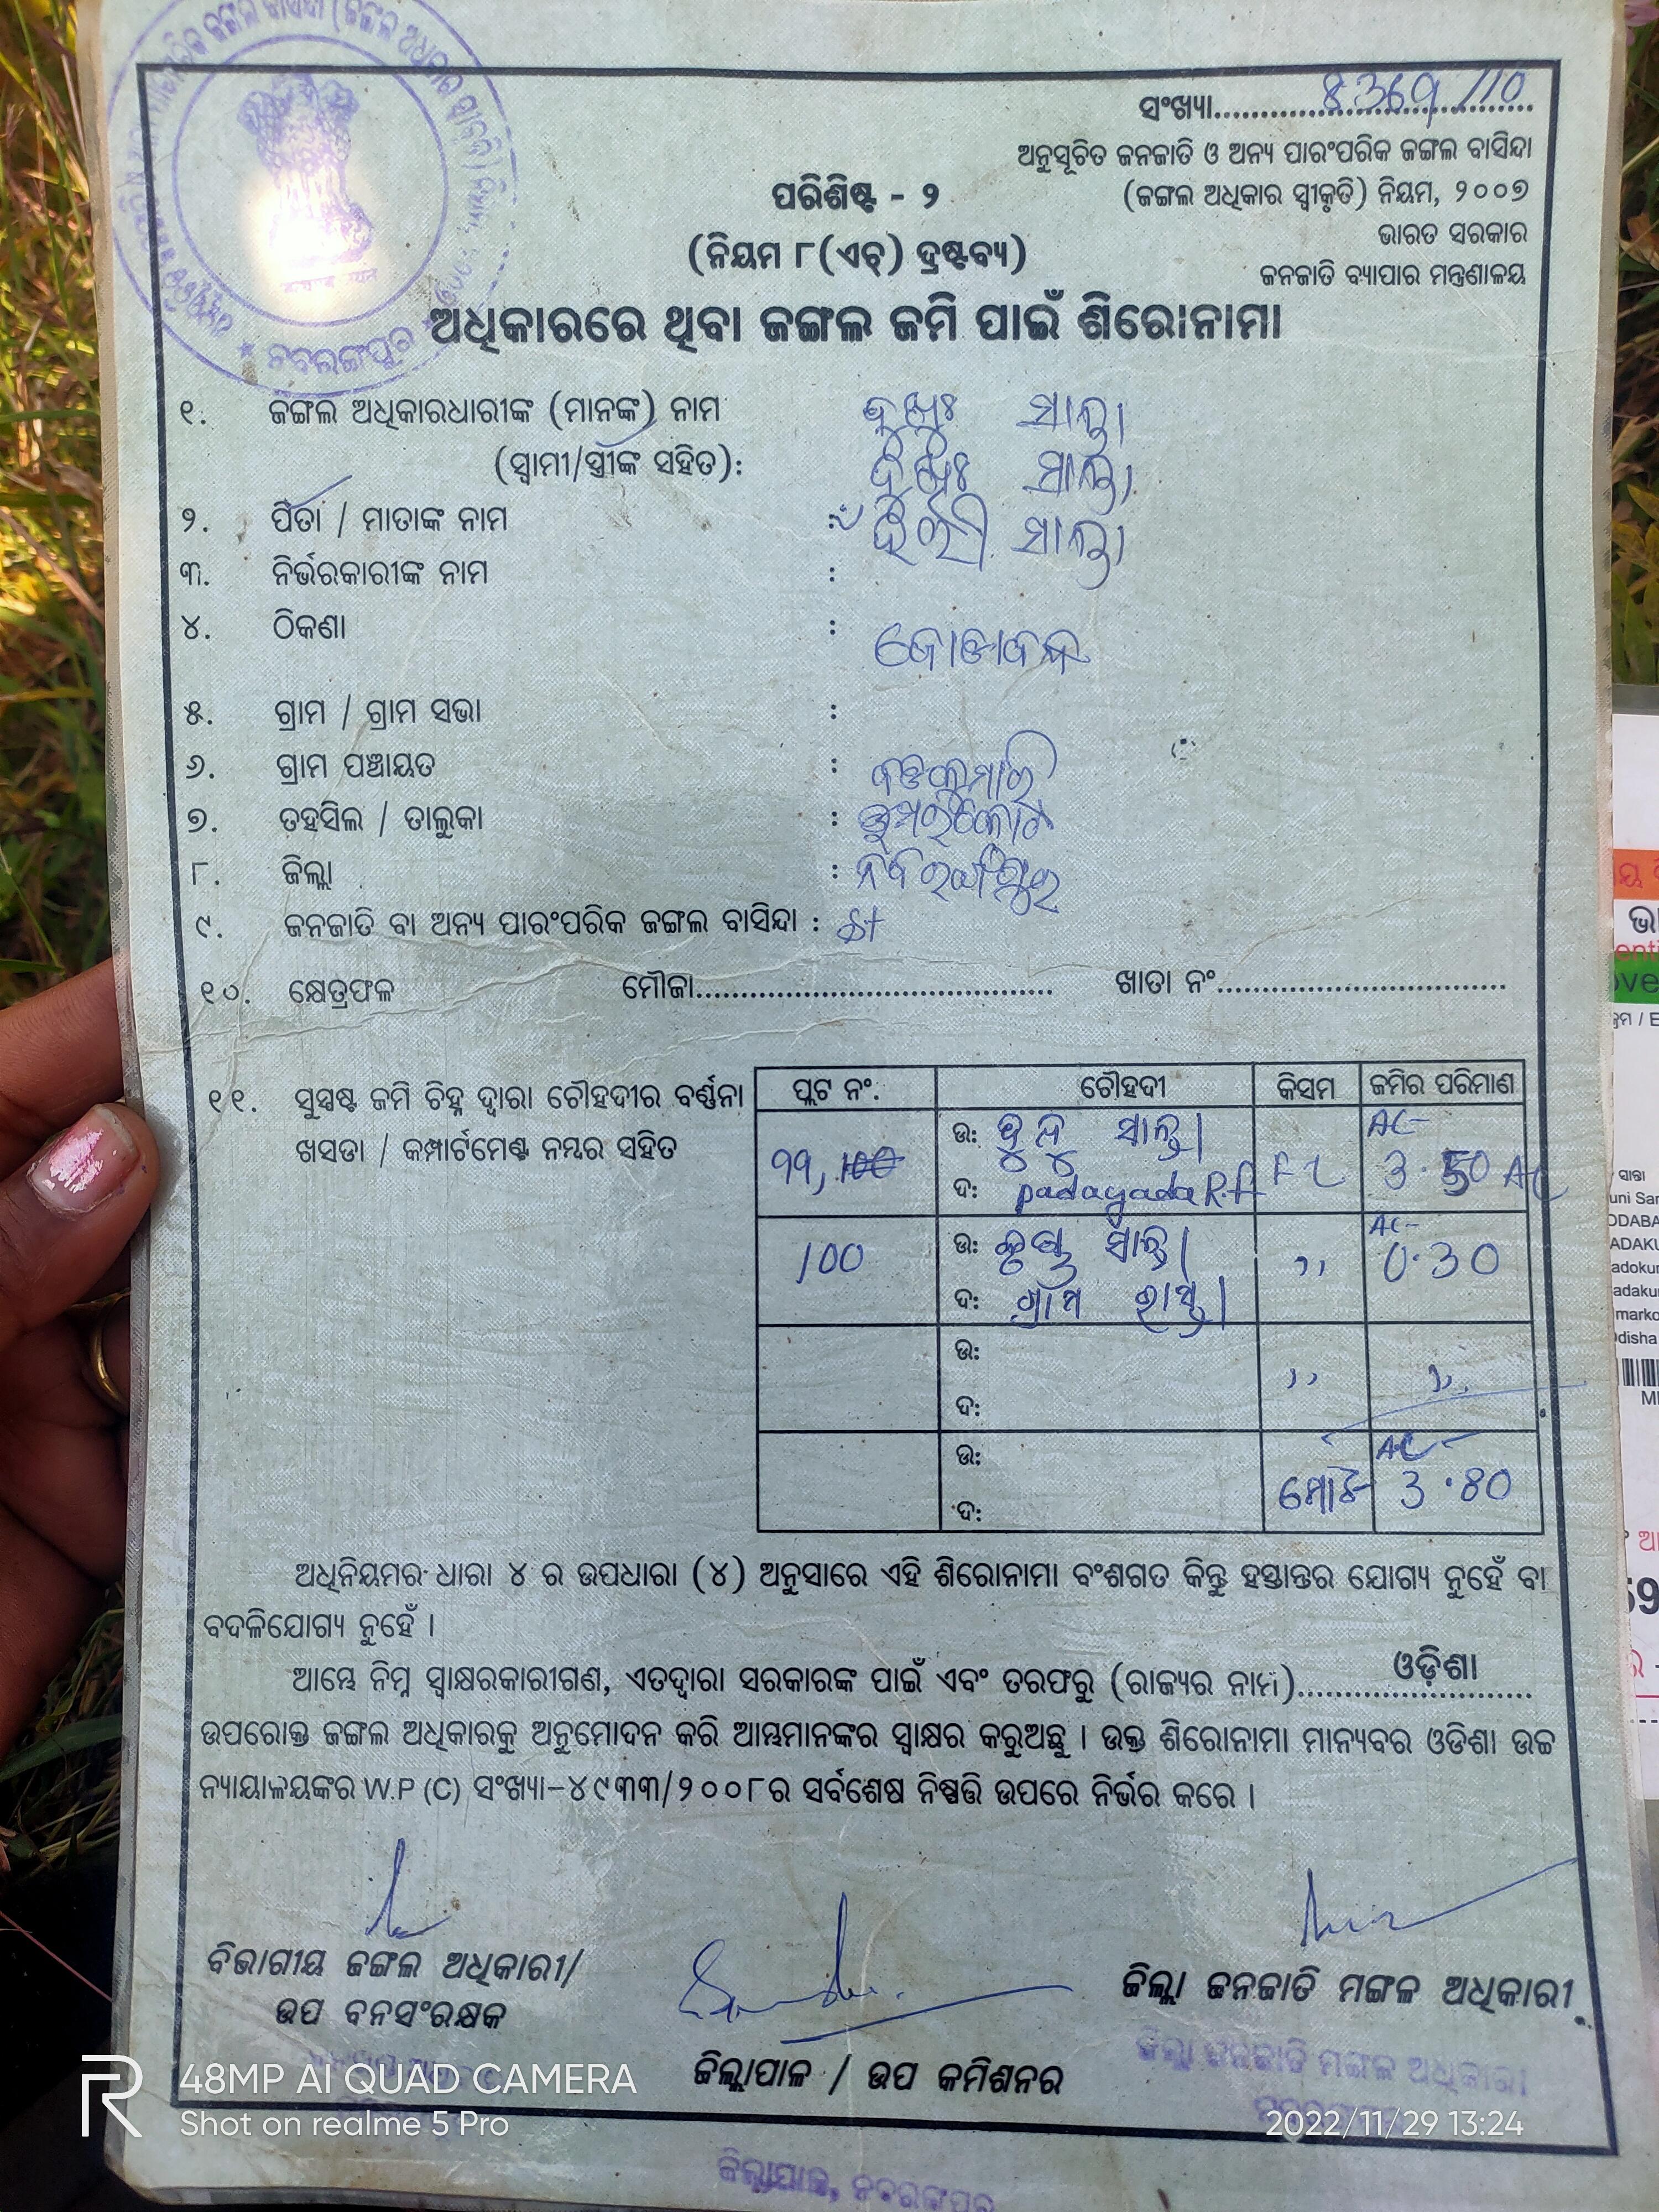 ସଂଖ୍ୟା........ 8369/10
ଅନୁସୂଚିତ ଜନଜାତି ଓ ଅନ୍ୟ ପାରଂପରିକ ଜଙ୍ଗଲ ବାସିନ୍ଦା
(ଜଙ୍ଗଲ ଅଧିକାର ସ୍ୱୀକୃତି) ନିୟମ, ୨୦୦୭
ଭାରତ ସରକାର
ଜନଜାତି ବ୍ୟାପାର ମନ୍ତ୍ରଣାଳୟ
ପରିଶିଷ୍ଟ - ୨
(ନିୟମ ୮(ଏଚ୍) ଦ୍ରଷ୍ଟବ୍ୟ)
ଅଧିକାରରେ ଥିବା ଜଙ୍ଗଲ ଜମି ପାଇଁ ଶିରୋନାମା
ନବରଙ୍ଗପୁର
୧. ଜଙ୍ଗଲ ଅଧିକାରଧାରୀଙ୍କ (ମାନଙ୍କ) ନାମ ସାନ୍ତା
(ସ୍ୱାମୀ/ସ୍ତ୍ରୀଙ୍କ ସହିତ): ସାନ୍ତା
୨. ପିତା / ମାତାଙ୍କ ନାମ : ସାନ୍ତା
୩. ନିର୍ଭରକାରୀଙ୍କ ନାମ :
୪. ଠିକଣା :
୫. ଗ୍ରାମ / ଗ୍ରାମ ସଭା :
୬. ଗ୍ରାମ ପଞ୍ଚାୟତ : ବଡକୁମାରି
୭. ତହସିଲ / ତାଲୁକା : ଉମରକୋଟ
୮. ଜିଲ୍ଲା : ନବରଙ୍ଗପୁର
୯. ଜନଜାତି ବା ଅନ୍ୟ ପାରଂପରିକ ଜଙ୍ଗଲ ବାସିନ୍ଦା : St
୧୦. କ୍ଷେତ୍ରଫଳ ମୌଜା........ ଖାତା ନଂ........
୧୧. ସୁସ୍ପଷ୍ଟ ଜମି ଚିହ୍ନ ଦ୍ୱାରା ଚୌହଦୀର ବର୍ଣ୍ଣନା
ଖସଡା / କମ୍ପାର୍ଟମେଣ୍ଟ ନମ୍ବର ସହିତ
ପ୍ଲଟ ନଂ. ଚୌହଦୀ କିସମ ଜମିର ପରିମାଣ
99, 100 ଉ: ସାନ୍ତା AC-
ଦ: padagada R.F 3.50 AC
100 ଉ: ସାନ୍ତା ,, AC- 0.30
ଦ: ଗ୍ରାମ ରାସ୍ତା
ଉ: ,, ,,
ଦ:
ଉ: AC
ଦ: ମୋଟ 3.80
ଅଧିନିୟମର ଧାରା ୪ ର ଉପଧାରା (୪) ଅନୁସାରେ ଏହି ଶିରୋନାମା ବଂଶଗତ କିନ୍ତୁ ହସ୍ତାନ୍ତର ଯୋଗ୍ୟ ନୁହେଁ ବା
ବଦଳିଯୋଗ୍ୟ ନୁହେଁ ।
ଆମ୍ଭେ ନିମ୍ନ ସ୍ୱାକ୍ଷରକାରୀଗଣ, ଏତଦ୍ୱାରା ସରକାରଙ୍କ ପାଇଁ ଏବଂ ତରଫରୁ (ରାଜ୍ୟର ନାମ)........ ଓଡ଼ିଶା
ଉପରୋକ୍ତ ଜଙ୍ଗଲ ଅଧିକାରକୁ ଅନୁମୋଦନ କରି ଆମ୍ଭମାନଙ୍କର ସ୍ୱାକ୍ଷର କରୁଅଛୁ । ଉକ୍ତ ଶିରୋନାମା ମାନ୍ୟବର ଓଡିଶା ଉଚ୍ଚ
ନ୍ୟାୟାଳୟଙ୍କର W.P (C) ସଂଖ୍ୟା-୪୯୩୩/୨୦୦୮ର ସର୍ବଶେଷ ନିଷ୍ପତ୍ତି ଉପରେ ନିର୍ଭର କରେ ।
ବିଭାଗୀୟ ଜଙ୍ଗଲ ଅଧିକାରୀ/
ଉପ ବନସଂରକ୍ଷକ
ଜିଲ୍ଲାପାଳ / ଉପ କମିଶନର
ଜିଲ୍ଲା ଜନଜାତି ମଙ୍ଗଳ ଅଧିକାରୀ
ଜିଲ୍ଲା ଜନଜାତି ମଙ୍ଗଳ ଅଧିକାରୀ
ଜିଲ୍ଲାପାଳ, ନବରଙ୍ଗପୁର
48MP AI QUAD CAMERA
Shot on realme 5 Pro
2022/11/29 13:24